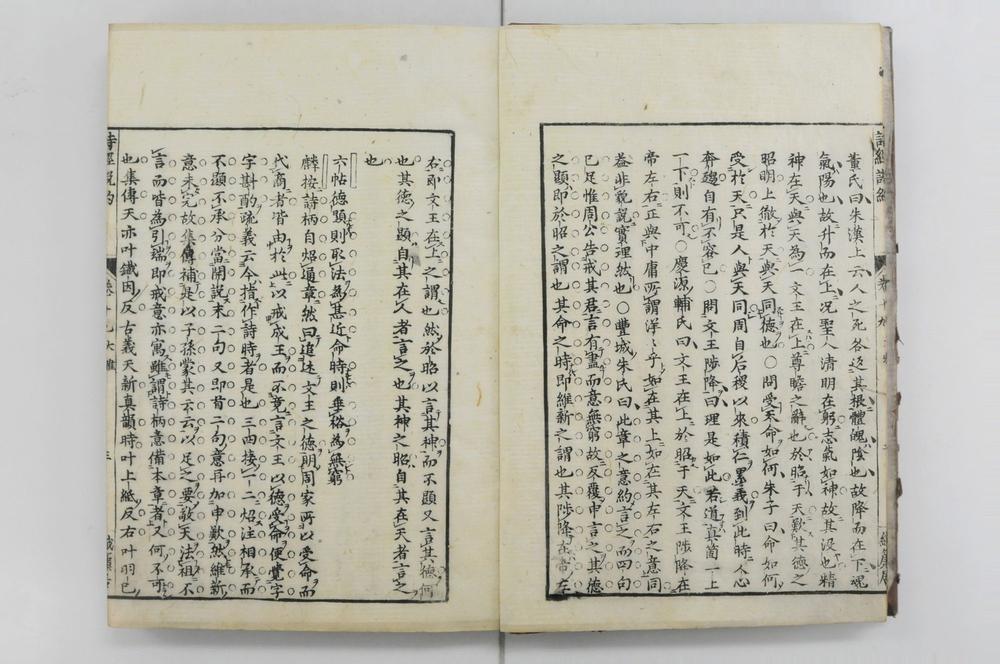 董氏曰朱漢上云人之死各返其根體魄陰也故降而在下魂
氣陽也故升而在上况聖人清明在躬志氣如神故其没也精
神在天與天為一文王在上尊瞻之辭也於昭于天歎其德之
昭明上徹於天與天同德也○問受天命如何朱子曰命如何
受於天只是人與天同周自后稷以來積仁累義到此時人心
奔趨自有不容已○問文王陟降曰理是如此若道真箇一上
一下則不可○慶源輔氏曰文王在上於昭于天文王陟降在
帝左右正與中庸所謂洋洋乎如在其上如在其左右之意同
益非貌説實理然也○豐城朱氏曰此章之意約言之而四句
已足惟周公告戒其君言有盡而意無窮故反覆申言之其德
之顯即於昭之謂也其命之時即維新之謂也其陟降在帝左
右即文王在上之謂也然於昭以言其神而不顯又言其德何
也其德之顯自其在人者言之也其神之昭自其在天者言之
也
六帖德顯則取法為甚近命時則垂裕為無窮
麟按詩柄自炤通章然曰追述文王之德明周家所以受命而
代商者皆由於此以戒成王而不竟言文王以德受命便覺字
字斟酌疏義云今指作詩時者是也三四接一二炤注相承而
不顯不承分當開説末二句又即首二句意再加申歎然維新
意未完故集傳補是以子孫蒙其云云以足之要敬天法祖不
言而皆為引端即戒意亦寓雖謂詩柄意備本章者又何不可
也集傳天亦叶鐵因反古義天新真韻時叶上紙反右叶羽已
詩經説約
卷十九大雅
三